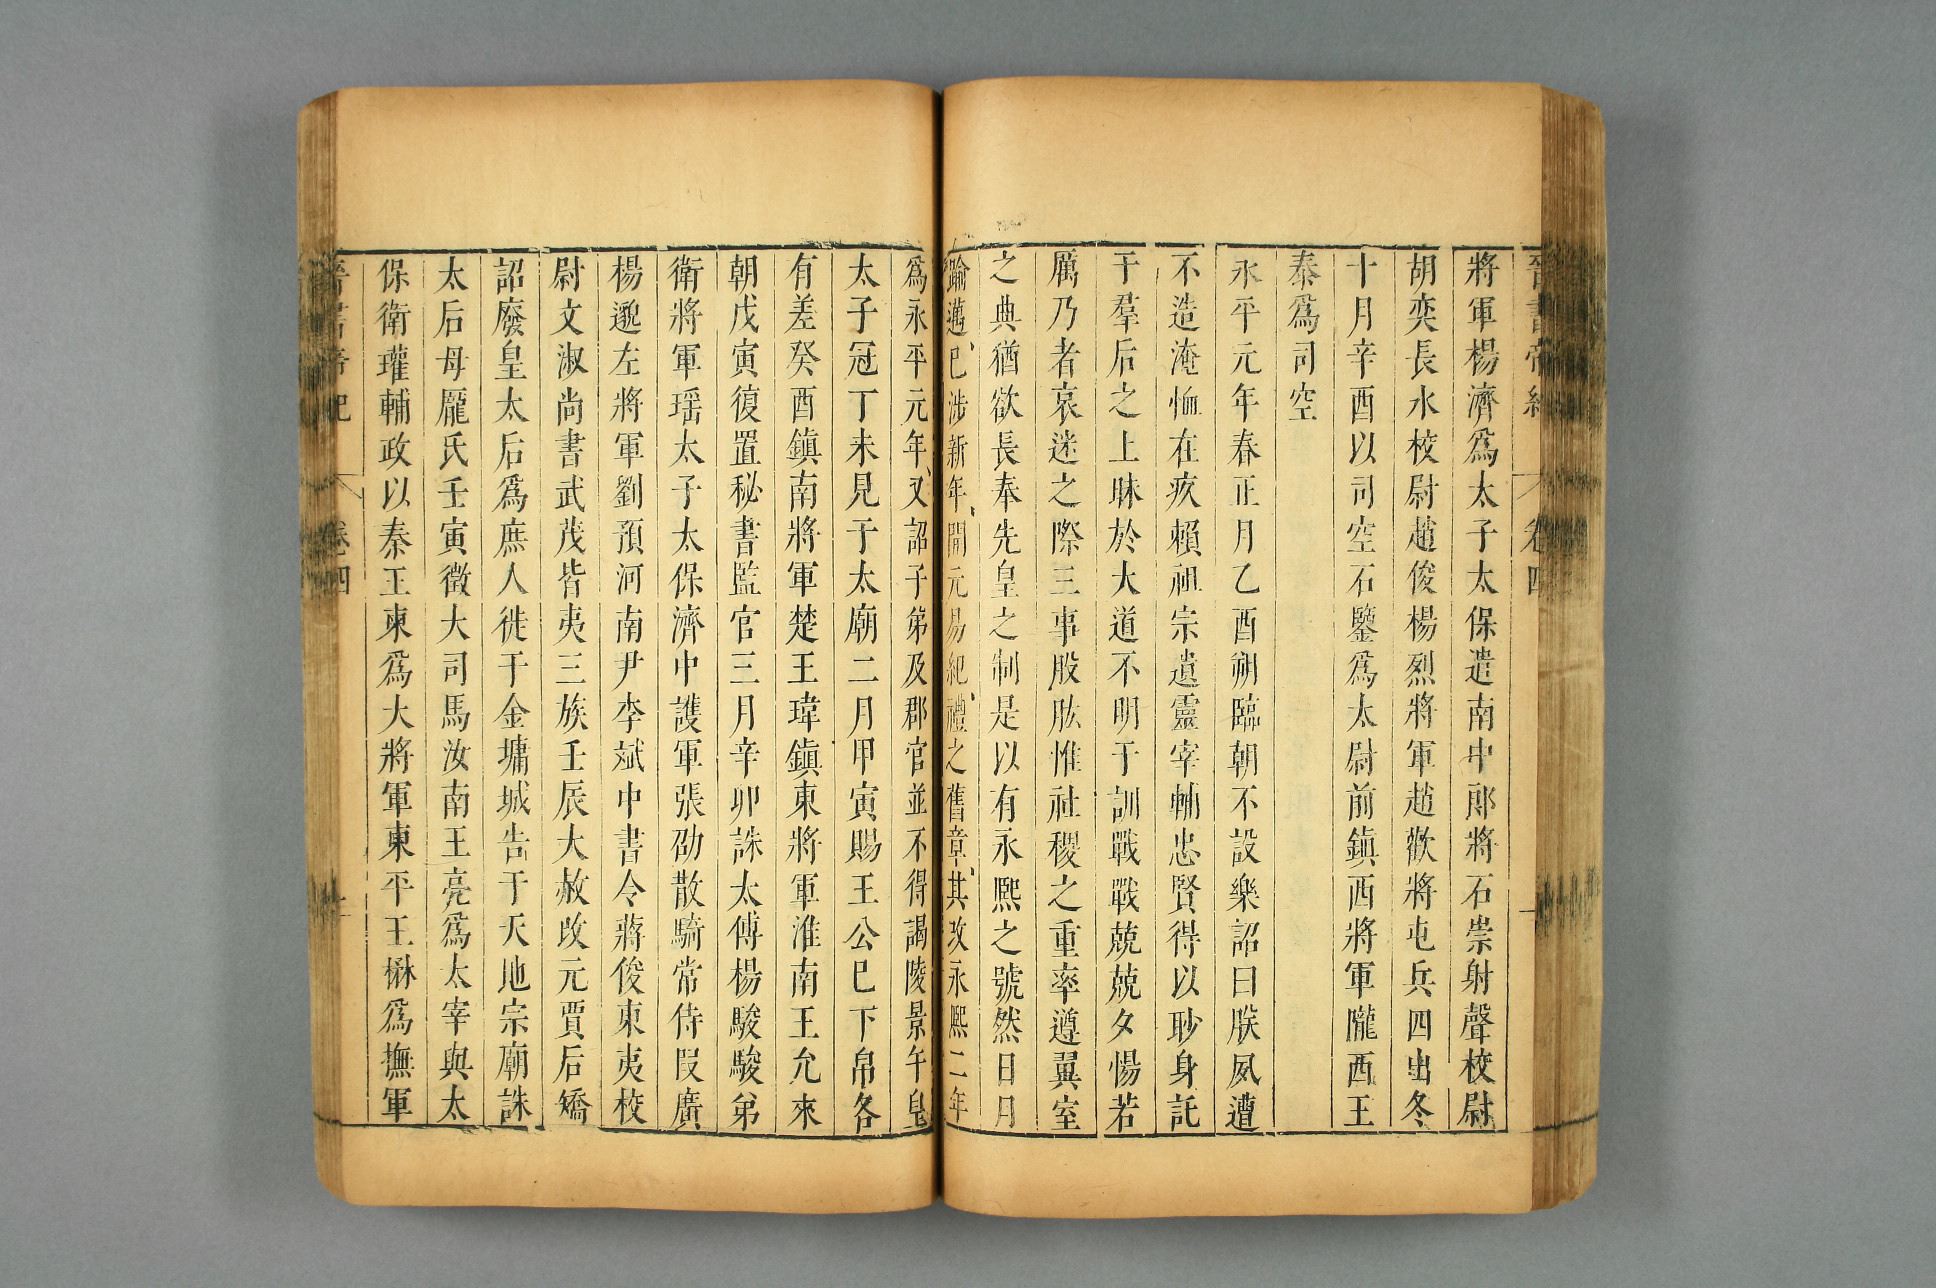 晉書帝紀 卷四
將軍楊濟爲太子太保遣南中郎將石崇射聲校尉
胡奕長水校尉趙俊楊烈將軍趙歡將屯兵四出冬
十月辛酉以司空石鑒爲太尉前鎮西將軍隴西王
泰爲司空
永平元年春正月乙酉朔臨朝不設樂詔曰朕夙遭
不造淹恤在疚賴祖宗遺靈宰輔忠賢得以眇身託
于羣后之上昧於大道不明于訓戰戰兢兢夕惕若
厲乃者哀迷之際三事股肱惟社稷之重率遵翼室
之典猶欲長奉先皇之制是以有永熙之號然日月
踰邁已涉新年開元易紀禮之舊章其改永熙二年
爲永平元年又詔子弟及郡官並不得謁陵景午皇
太子冠丁未見于太廟二月甲寅賜王公已下帛各
有差癸酉鎮南將軍楚王瑋鎮東將軍淮南王允來
朝戊寅復置秘書監官三月辛卯誅太傅楊駿駿弟
衛將軍瑶太子太保濟中護軍張劭散騎常侍叚廣
楊邈左將軍劉預河南尹李斌中書令蔣俊東夷校
尉文淑尚書武茂皆夷三族壬辰大赦改元賈后矯
詔廢皇太后爲庶人徙于金墉城告于天地宗廟誅
太后母龐氏壬寅徵大司馬汝南王亮爲太宰與太
保衛瓘輔政以秦王柬爲大將軍東平王楙爲撫軍
晉書帝紀 卷四